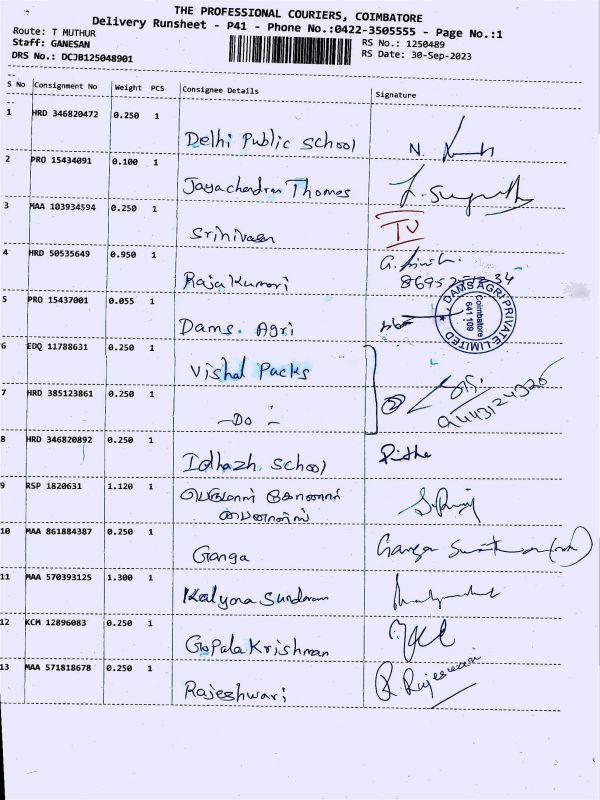 THE PROFESSIONAL COURIERS, COIMBATORE
Delivery Runsheet - P41 - Phone No.:0422-3505555 - Page No.:1
Route: T MUTHUR
Staff: GANESAN
DRS No.: DCJB125048901
RS No.: 1250489
RS Date: 30-Sep-2023
S No Consignment No Weight PCS Consignee Details Signature
1 HRD 346820472 0.250 1 Delhi Public School N.
2 PRO 15434091 0.100 1 Jayachandran Thomas
3 MAA 103934594 0.250 1 Srinivasan TV
4 HRD 50535649 0.950 1 Raja Kumari
5 PRO 15437001 0.055 1 Dams. Agri
DAMS AGRI PRIVATE LIMITED
Coimbatore
641 109
6 EDQ 11788631 0.250 1 Vishal Packs
7 HRD 385123861 0.250 1 -Do- 2
8 HRD 346820892 0.250 1 Idhazh. School
9 RSP 1820631 1.120 1 பெருமாள் கோணார்
10 MAA 861884387 0.250 1 Ganga Ganga
11 MAA 570393125 1.300 1 Kalyana Sundaram
12 KCM 12896083 0.250 1 Gopala Krishnan
13 MAA 571818678 0.250 1 Rajeshwari R. Rajeswari